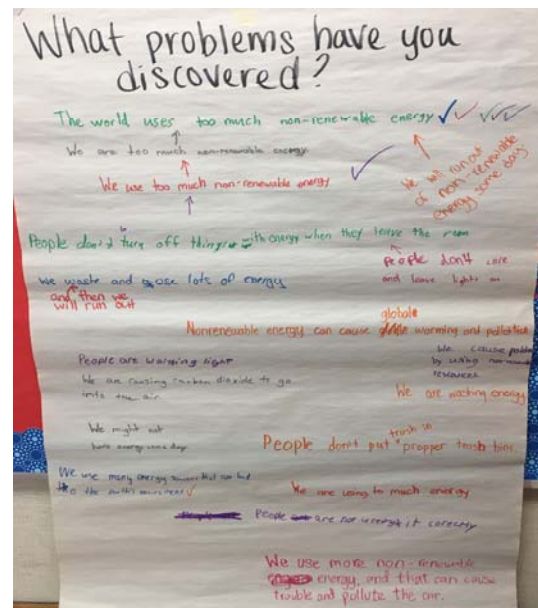 What problems have you
discovered?
The world uses too much non-renewable energy
We are too much non-renewable energy
We use too much non-renewable energy
We will run out
of non-renewable
energy some day
People don't turn off things with energy when they leave the room
People don't care
and leave lights on
We waste and lots of energy
and then we
will run out
globale
Nonrenewable energy can cause worming and pollution
We cause
by using
resources
People are light
We are causing carbon dioxide to go
into the air
We are wasting energy
We might not
have energy some day
trash in
People don't put propper trash bins
We use many energy that can
to the earth's
We are using to much energy
People are not it correctly
We use more non-renewable
energy, and that can cause
trouble and pollute the air.